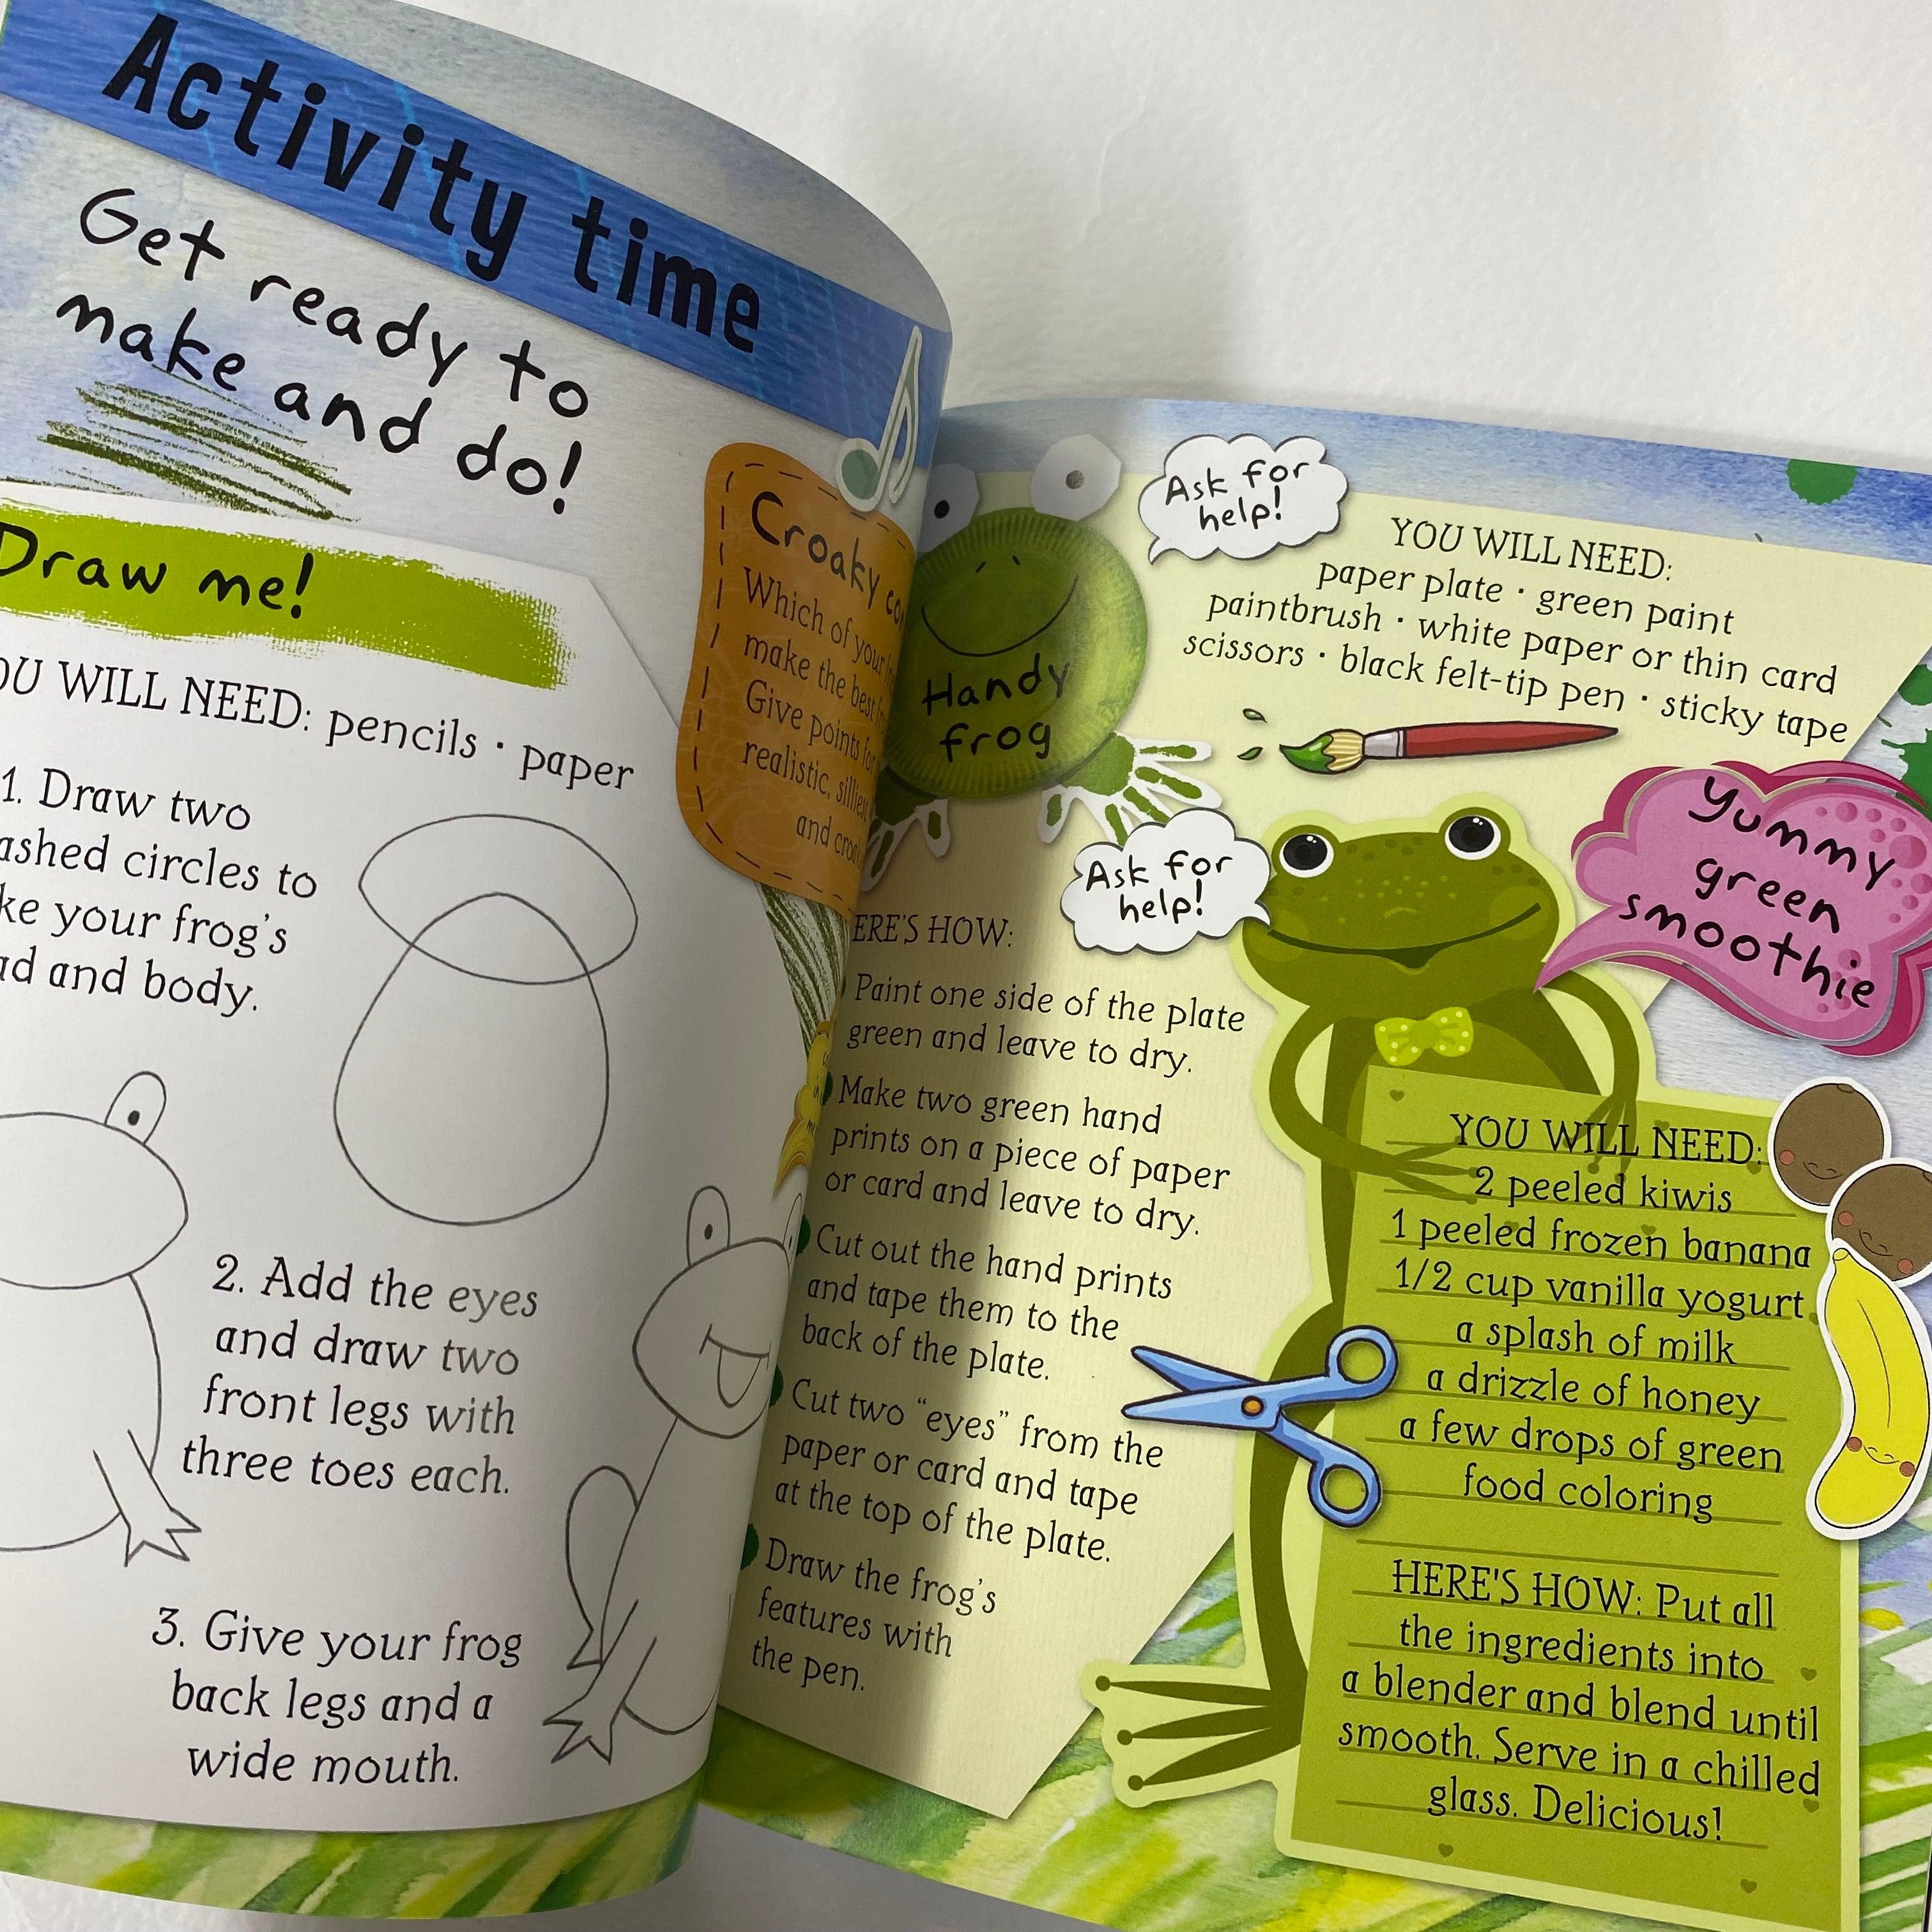 Activity time
Get ready to
make and do!
Draw me!
WILL NEED: pencils · paper
1. Draw two
circles to
your frog's
and body.
2. Add the eyes
and draw two
front legs with
three toes each.
3. Give your frog
back legs and a
wide mouth.
Croaky
Which of your
make the best
Give points for
realistic,
and
Handy
frog
Ask for
help!
YOU WILL NEED:
paper plate · green paint
paintbrush · white paper or thin card
scissors · black felt-tip pen · sticky tape
HOW:
Paint one side of the plate
green and leave to dry.
Make two green hand
prints on a piece of paper
or card and leave to dry.
Cut out the hand prints
and tape them to the
back of the plate.
Cut two "eyes" from the
paper or card and tape
at the top of the plate.
Draw the frog's
features with
the pen.
Ask for
help!
Yummy
green
smoothie
YOU WILL NEED:
2 peeled kiwis
1 peeled frozen banana
1/2 cup vanilla yogurt
a splash of milk
a drizzle of honey
a few drops of green
food coloring
HERE'S HOW: Put all
the ingredients into
a blender and blend until
smooth. Serve in a chilled
glass. Delicious!